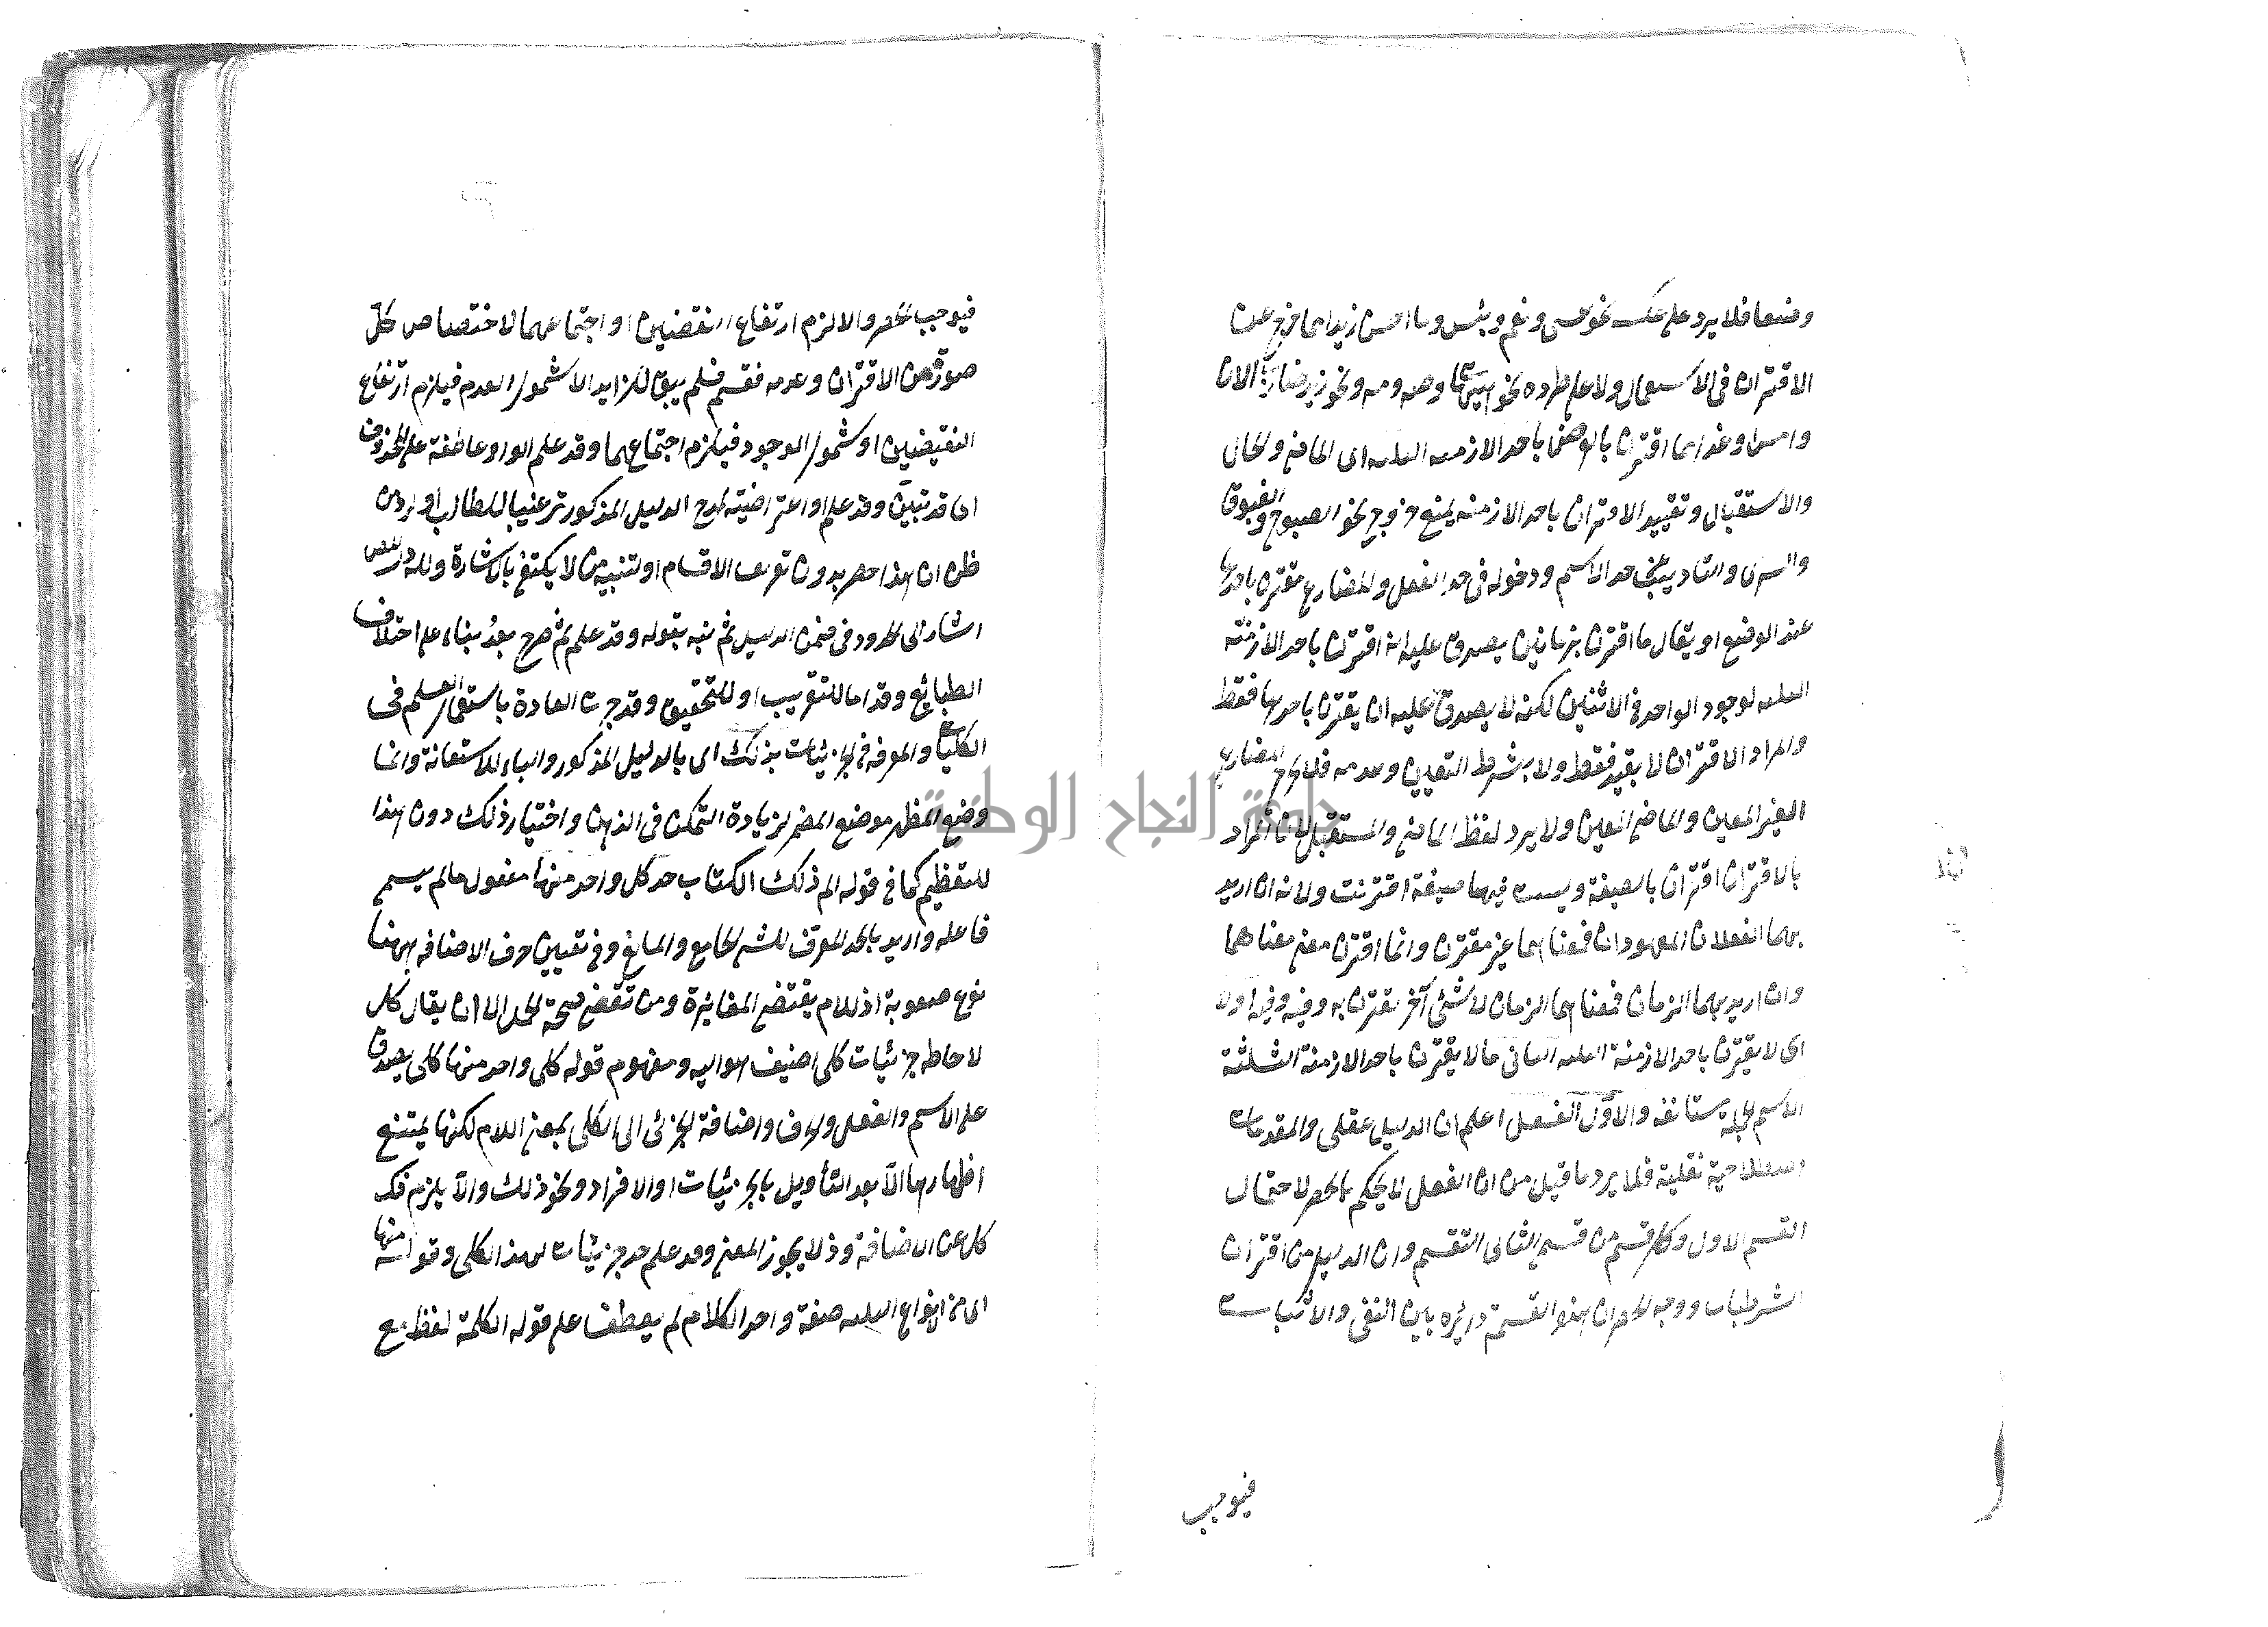 وضعا فلا يرد على عكسه نحو عسى ونعم وبئس وما احسن زيدا مما خرج عن
الاقتران في الاستعمال ولا على طرده نحو هيهات وصه ومه ونحو زيد ضارب الان
وامس او غدا مما اقترن بالوضع باحد الازمنة الثلثة اى الماضى والحال
والاستقبال وتقييد الاقتران باحد الازمنة يمنع خروج نحو الصبوح والغبوق
والسرى والتاديب عن حد الاسم ودخوله في حد الفعل والمضارع مقترن باحدها
عند الوضع او يقال ما اقترن بزمانين يصدق عليه انه اقترن باحد الازمنة
الثلثة لوجود الواحد في الاثنين لكنه لا يصدق عليه ان يقترن باحدها فقط
والمراد الاقتران لا بقيد فقط ولا بشرط التعين وعدمه فلا يخرج المضارع
الغير المعين والماضى المعين ولا يرد لفظ الماضى والمستقبل لان المراد
بالاقتران اقتران بالصيغة وليست فيهما صيغة اقترنت ولانه ان اريد
بهما الفعلان المعهودان فمعناهما غير مقترن وانما اقترن معنى معناهما
وان اريد بهما الزمان فمعناهما الزمان لا شئ آخر يقترن به وفيه وفيه اولا
اى لا يقترن باحد الازمنة الثلثة الثانى ما لا يقترن باحد الازمنة الثلثة
الاسم الجملة مستانفة والاول الفعل اعلم ان الدليل عقلى والمقدمات
اصطلاحية نقلية فلا يرد ما قيل من ان الفعل لا يحكم بالحصر لاحتمال
القسم الاول وكل قسم من قسمى الثانى التقسم وان الدليل من اقتران
الشرطيات ووجه الحصر ان هذه القسمة دائرة بين النفى والاثبات
فيوجب
فيوجب الحصر والا لزم ارتفاع النقضين او اجتماعهما لاختصاص كل
صورة من الاقتران وعدمه فقسم فلم يبق للزايد الا شمول العدم فيلزم ارتفاع
النقيضين او شمول الوجود فيلزم اجتماعهما وقد علم الواو عاطفة على المحذوف
اى قد تبين وقد علم او اعتراضية لمدح الدليل المذكور ترغيبا للطالب او لرد من
ظن ان هذا حصر بدون تعريف الاقسام او لتنبيه من لا يكتفى بالاشارة ولله در المص
اشار الى الحدود في ضمن الدليل ثم نبه بقوله وقد علم ثم صرح بعد بناء على اختلاف
الطبايع وقد اما للتقريب او للتحقيق وقد جرت العادة باستعمال العلم في
الكليات والمعرفة في الجزئيات بذلك اى بالدليل المذكور والباء للاستعانة وانما
وضع المظهر موضع المضمر لزيادة التمكن في الذهن واختيار ذلك دون هذا
للتعظيم كما في قوله الم ذلك الكتاب حد كل واحد منها مفعول ما لم يسم
فاعله واريد بالحد المعرف للشئ الجامع والمانع وفي تعيين حرف الاضافة ههنا
نوع صعوبة اذ اللام يقتضى المغائرة ومن تقتضى صحة الحمل الا ان يقال كل
لاحاطة جزئيات كلى اضيف هو اليه ومفهوم قوله كل واحد منها كلى يصدق
على الاسم والفعل والحرف واضافة الجزئى الى الكلى بمعنى اللام لكنها يمتنع
اظهارها الا بعد التأويل بالجزئيات او الافراد ونحو ذلك والا يلزم فك
كل عن الاضافة وذا لا يجوز المعنى وقد علم حد جزئيات لهذا الكلى وقوله منها
اى من الانواع الثلثة صفة واحد الكلام لم يعطف على قوله الكلمة لفظ مع
جامعة النجاح الوطنية